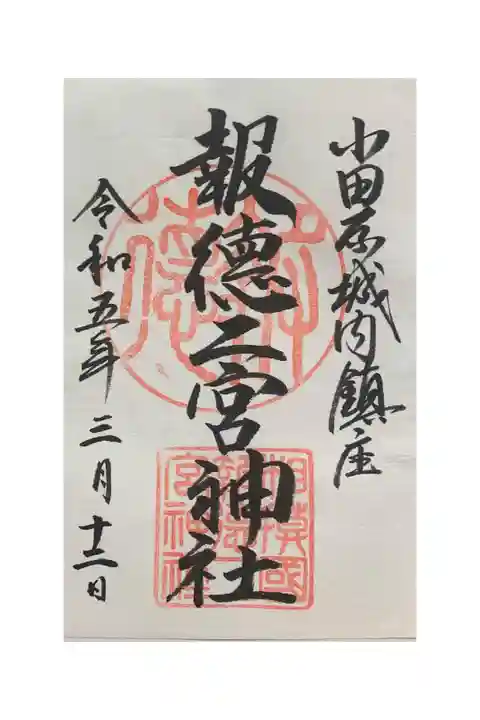 小田原城内鎮座
報徳二宮神社
令和五年三月十二日
相模國
報徳二
宮神社